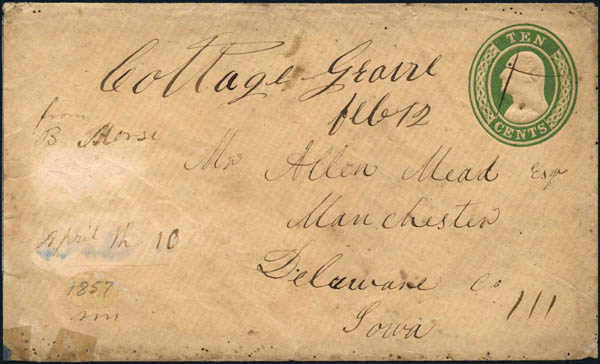 Cottage Grove
feb 12
TEN
CENTS
from
B Morse
Mr Allen Mead Esqr
Manchester
Delaware Co
Iowa
111
April th 10
1857